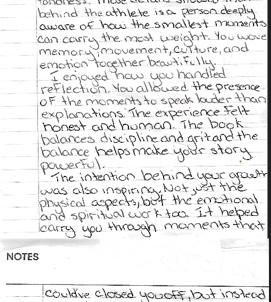 fondness. These
behind the athlete is a person deeply
aware of how the smallest moments
can carry the most weight. You wove
memory, movement, culture, and
emotion together beautifully.
I enjoyed how you handled
reflection. You allowed the presence
of the moments to speak louder than
explanations. The experience felt
honest and human. The book
balances discipline and grit and the
balance helps make your story
powerful.
The intention behind your growth
was also inspiring. Not just the
physical aspects, but the emotional
and spiritual work too. It helped
carry you through moments that
NOTES
could've closed you off, but instead